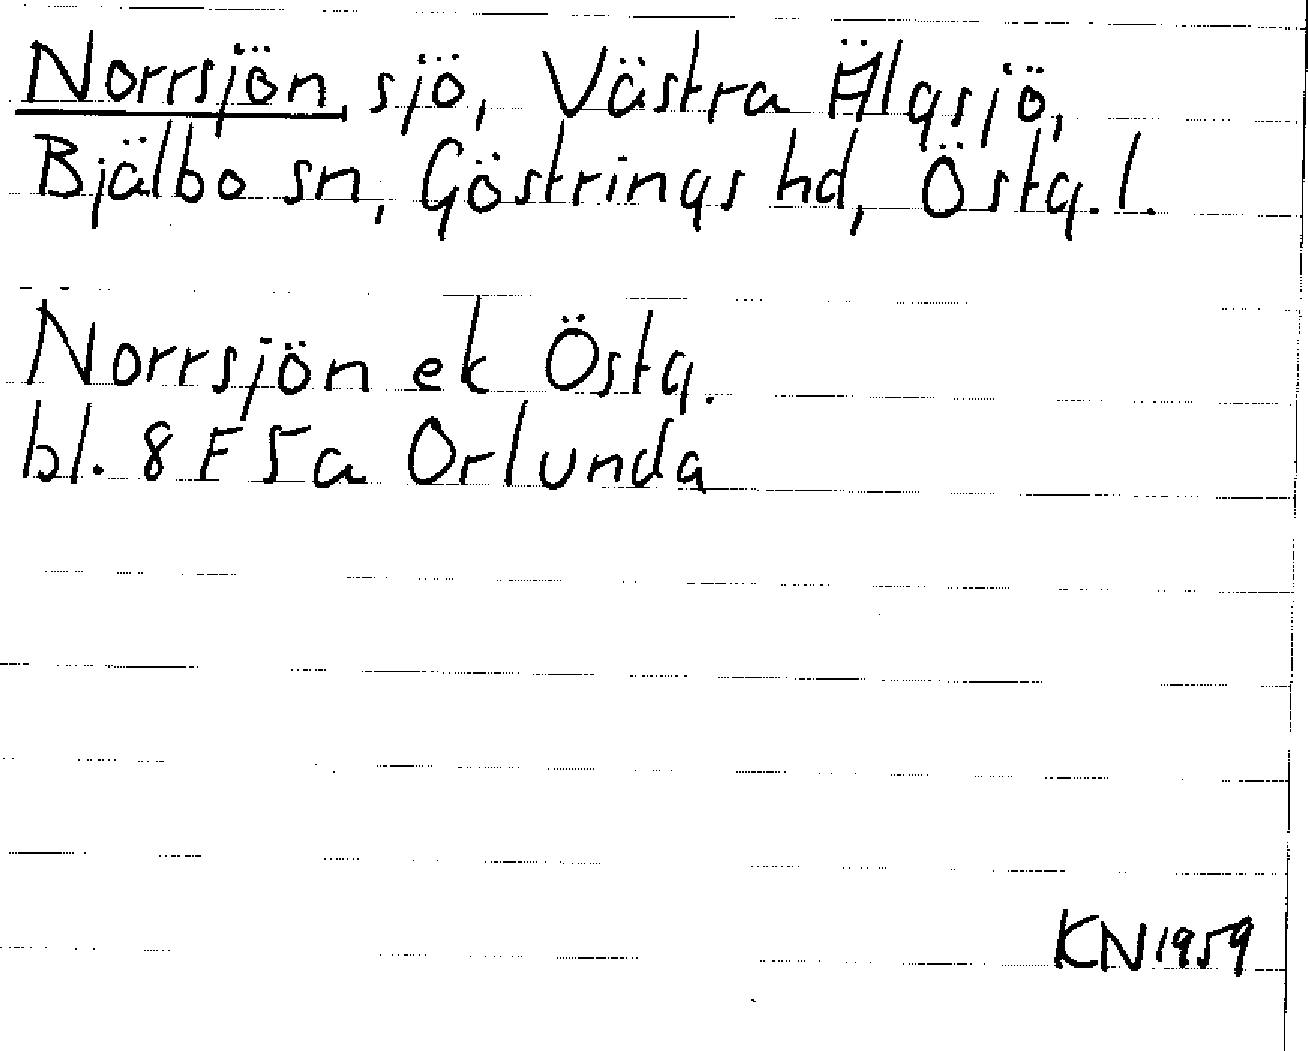 Norrsjön, sjö, Västra Älgsjö,
Bjälbo sn, Göstrings hd, Östg. l.
Norrsjön ek Östg.
bl. 8 F 5a Orlunda
KN 1959